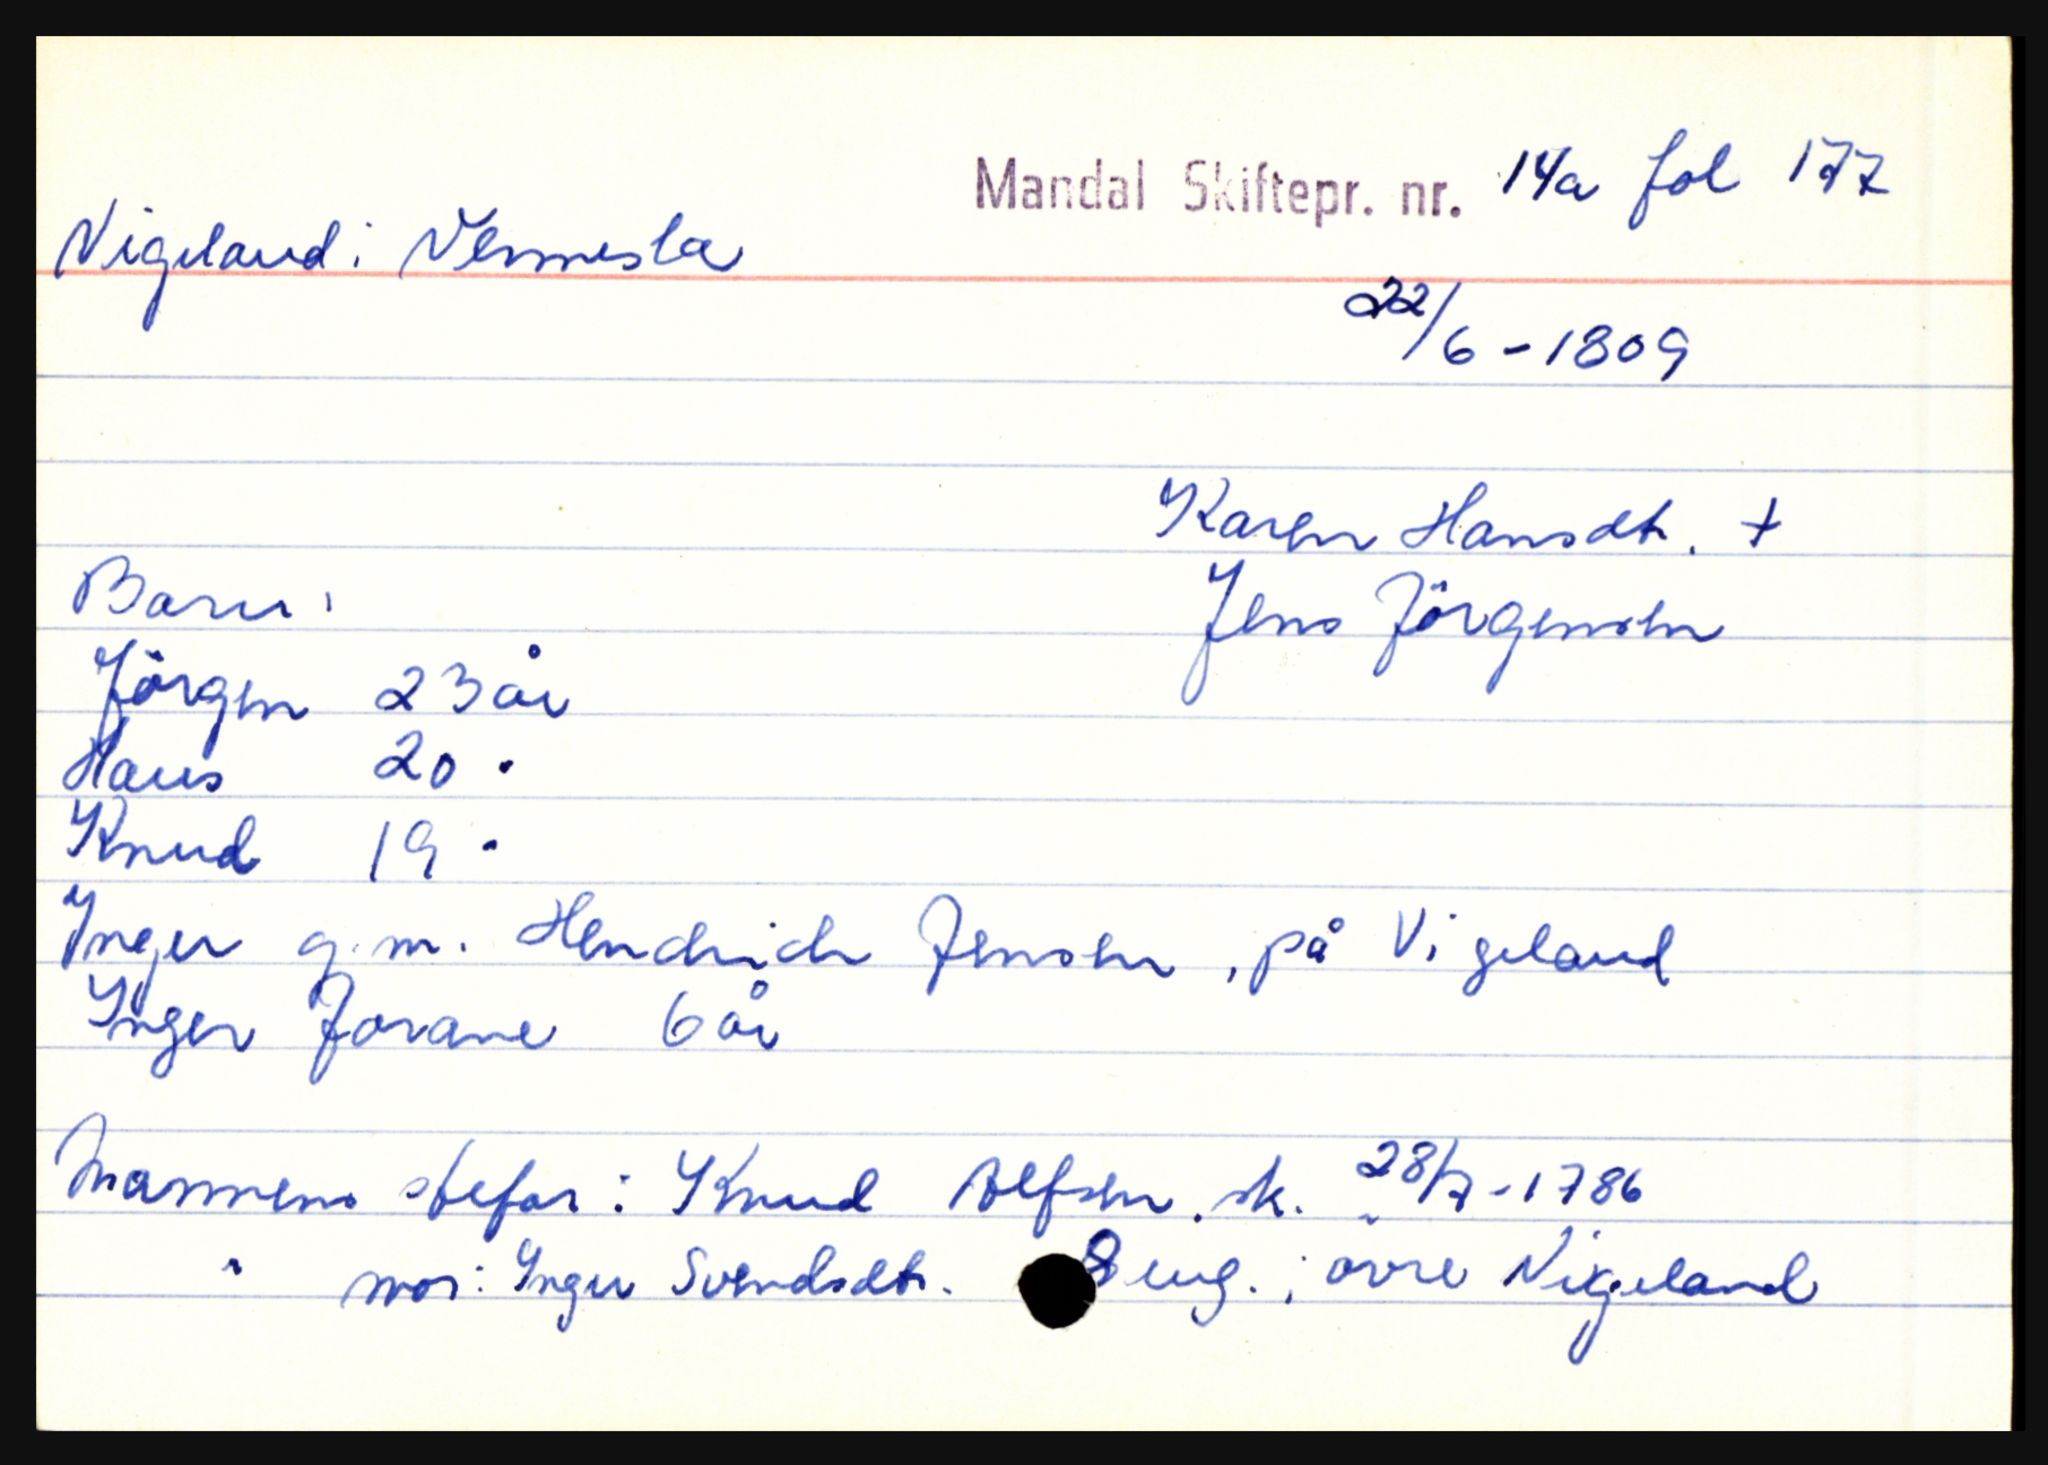 Mandal Skiftepr. nr. 14a fol 177
Vigeland i Vennesla
22/6 - 1809
Karen Hansdt. +
Jens Jörgensen
Barn:
Jörgen 23 år
Hans 20 "
Knud 19 "
Inger g.m. Hendrich Jensen, på Vigeland
Inger Jorane 6 år
Mannens stefar: Knud Alfsen. sk. 28/7 - 1786
" mor: Inger Svendsdt. eug. i övre Vigeland